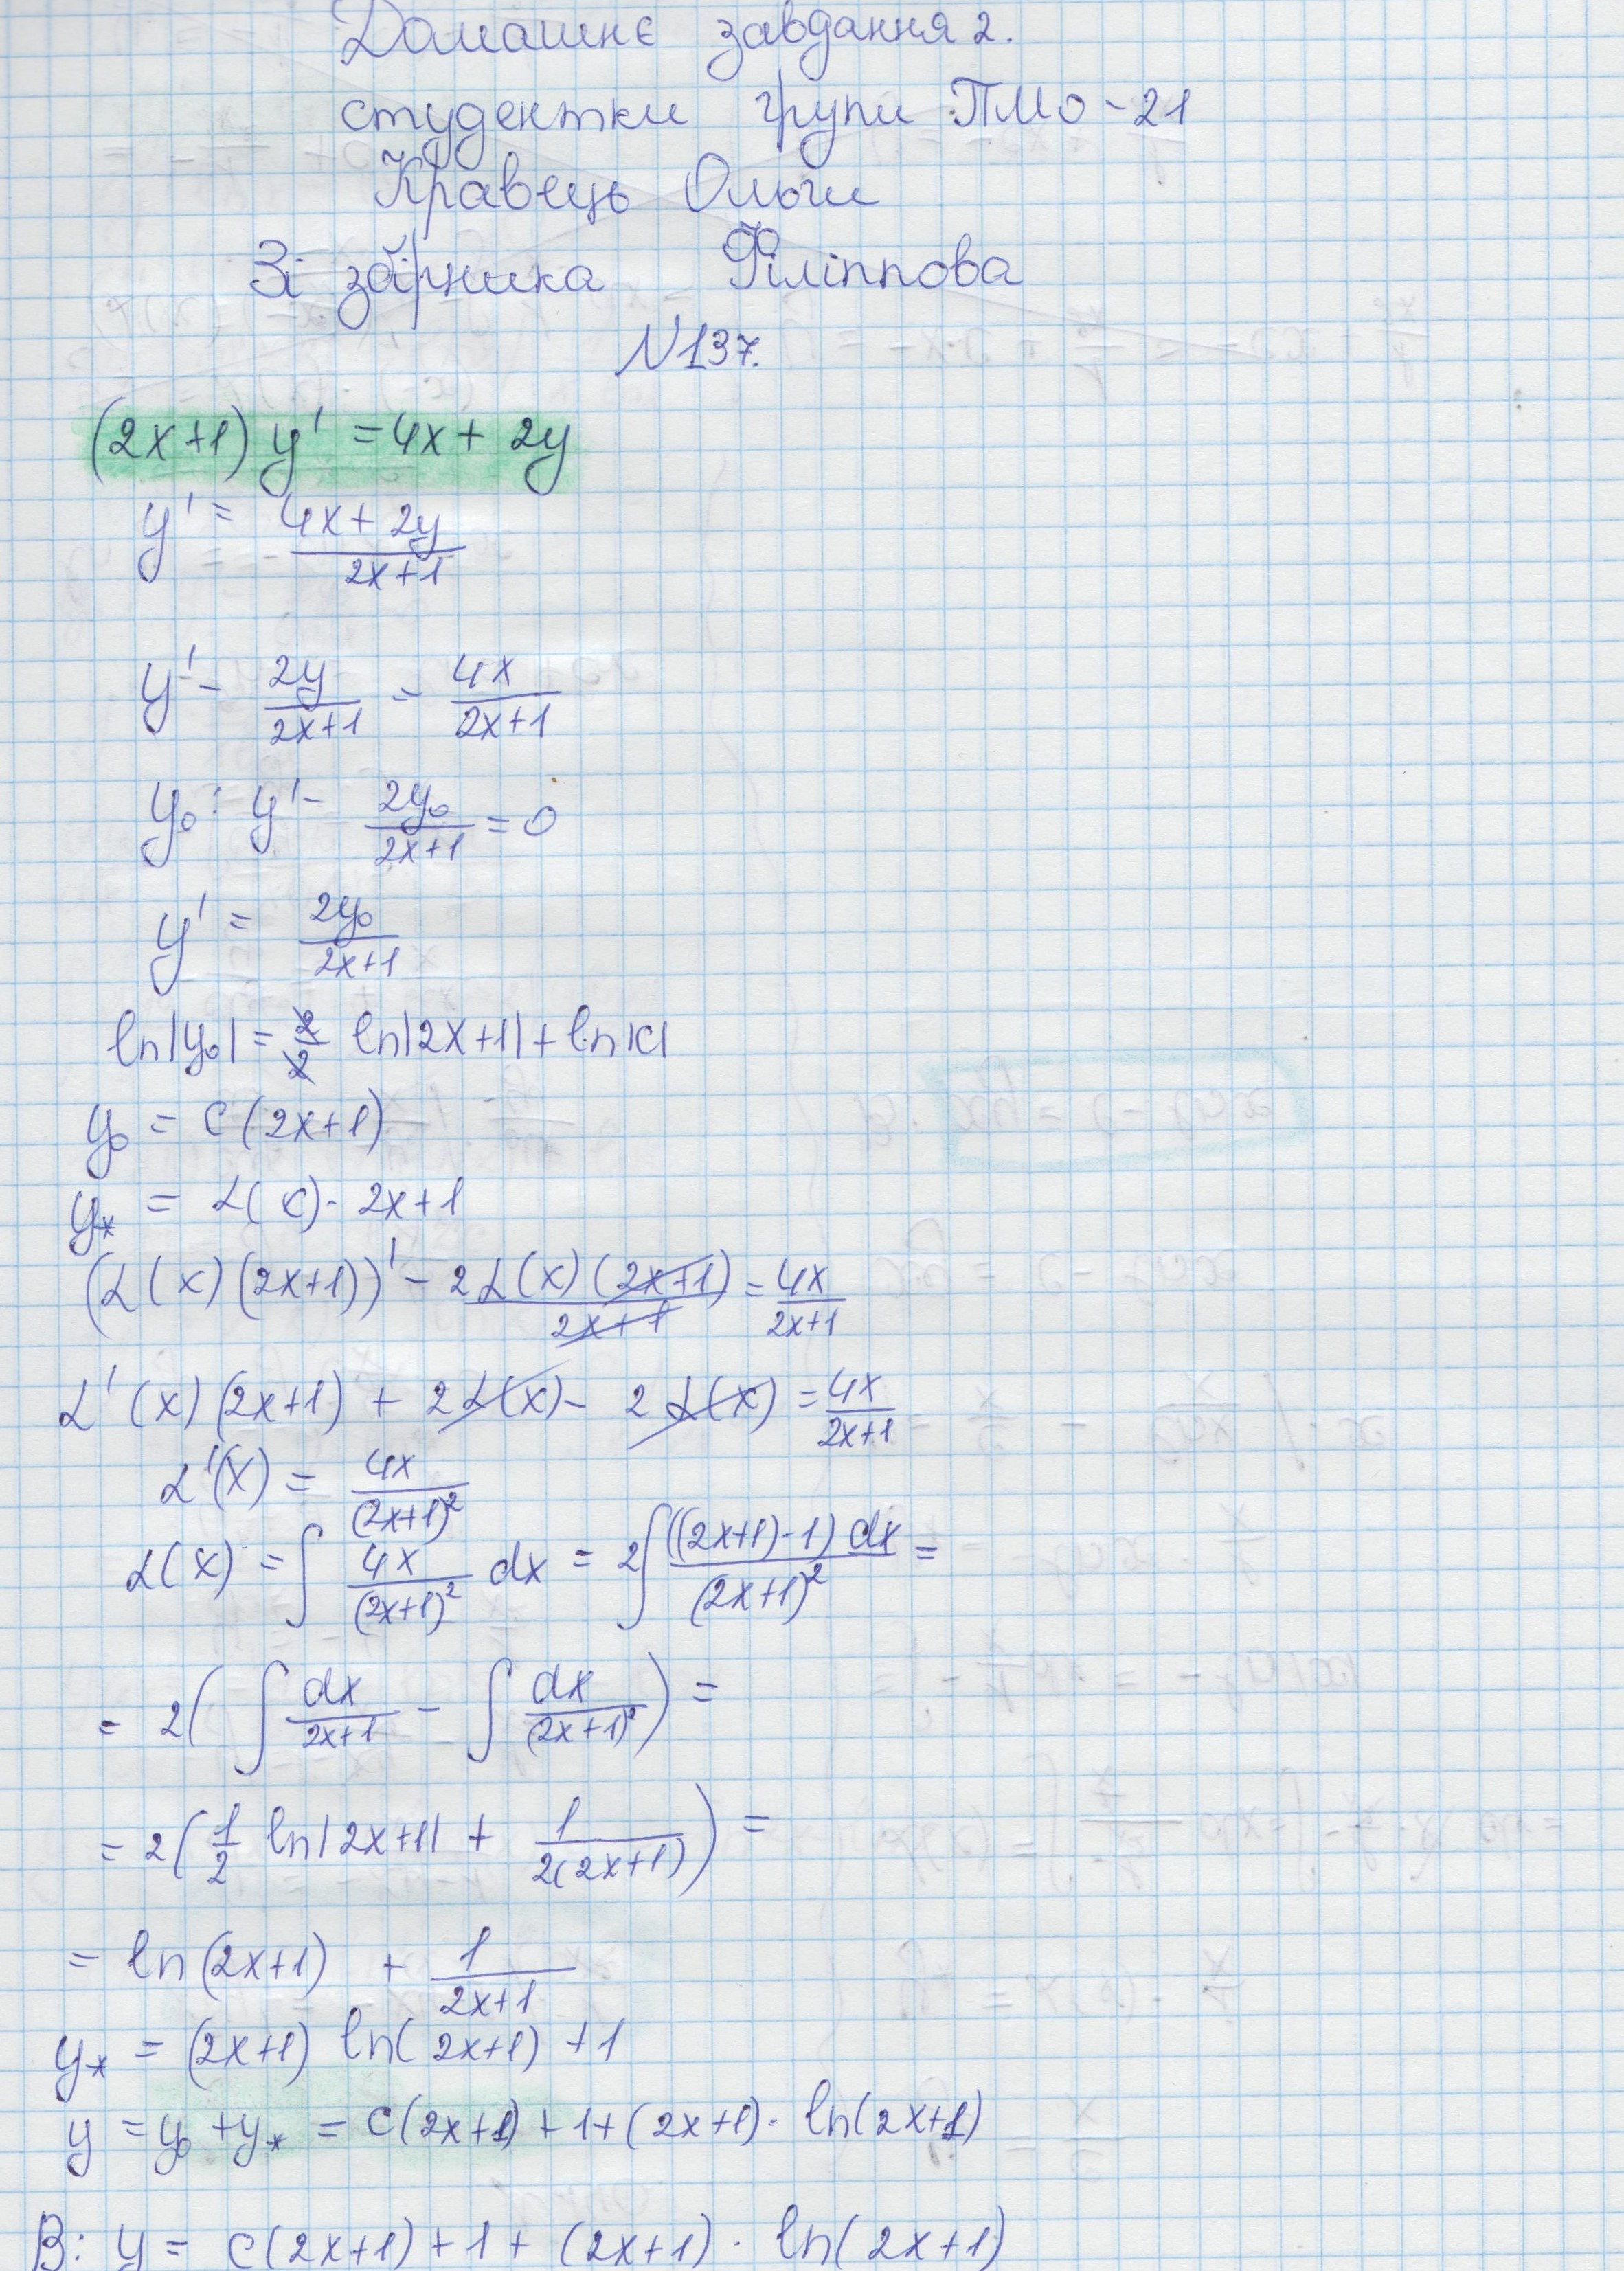 Домашнє завдання 2.
студентки групи ПМО-21
Кравець Ольги
Зі збірника Філіппова
№137.
(2x+1) y' = 4x + 2y
y' = \frac{4x+2y}{2x+1}
y' - \frac{2y}{2x+1} = \frac{4x}{2x+1}
y₀: y' - \frac{2y₀}{2x+1} = 0
y' = \frac{2y₀}{2x+1}
ln|y₀| = \frac{2}{2} ln|2x+1| + ln|c|
y₀ = c(2x+1)
y_* = α(x)·2x+1
(α(x)(2x+1))' - \frac{2α(x)(2x+1)}{2x+1} = \frac{4x}{2x+1}
α'(x)(2x+1) + 2α(x) - 2α(x) = \frac{4x}{2x+1}
α'(x) = \frac{4x}{(2x+1)²}
α(x) = ∫ \frac{4x}{(2x+1)²} dx = 2∫ \frac{((2x+1)-1) dx}{(2x+1)²} =
= 2( ∫ \frac{dx}{2x+1} - ∫ \frac{dx}{(2x+1)²} ) =
= 2( \frac{1}{2} ln|2x+1| + \frac{1}{2(2x+1)} ) =
= ln(2x+1) + \frac{1}{2x+1}
y_* = (2x+1) ln(2x+1) + 1
y = y₀ + y_* = c(2x+1) + 1 + (2x+1)· ln(2x+1)
В: y = c(2x+1) + 1 + (2x+1) · ln(2x+1)